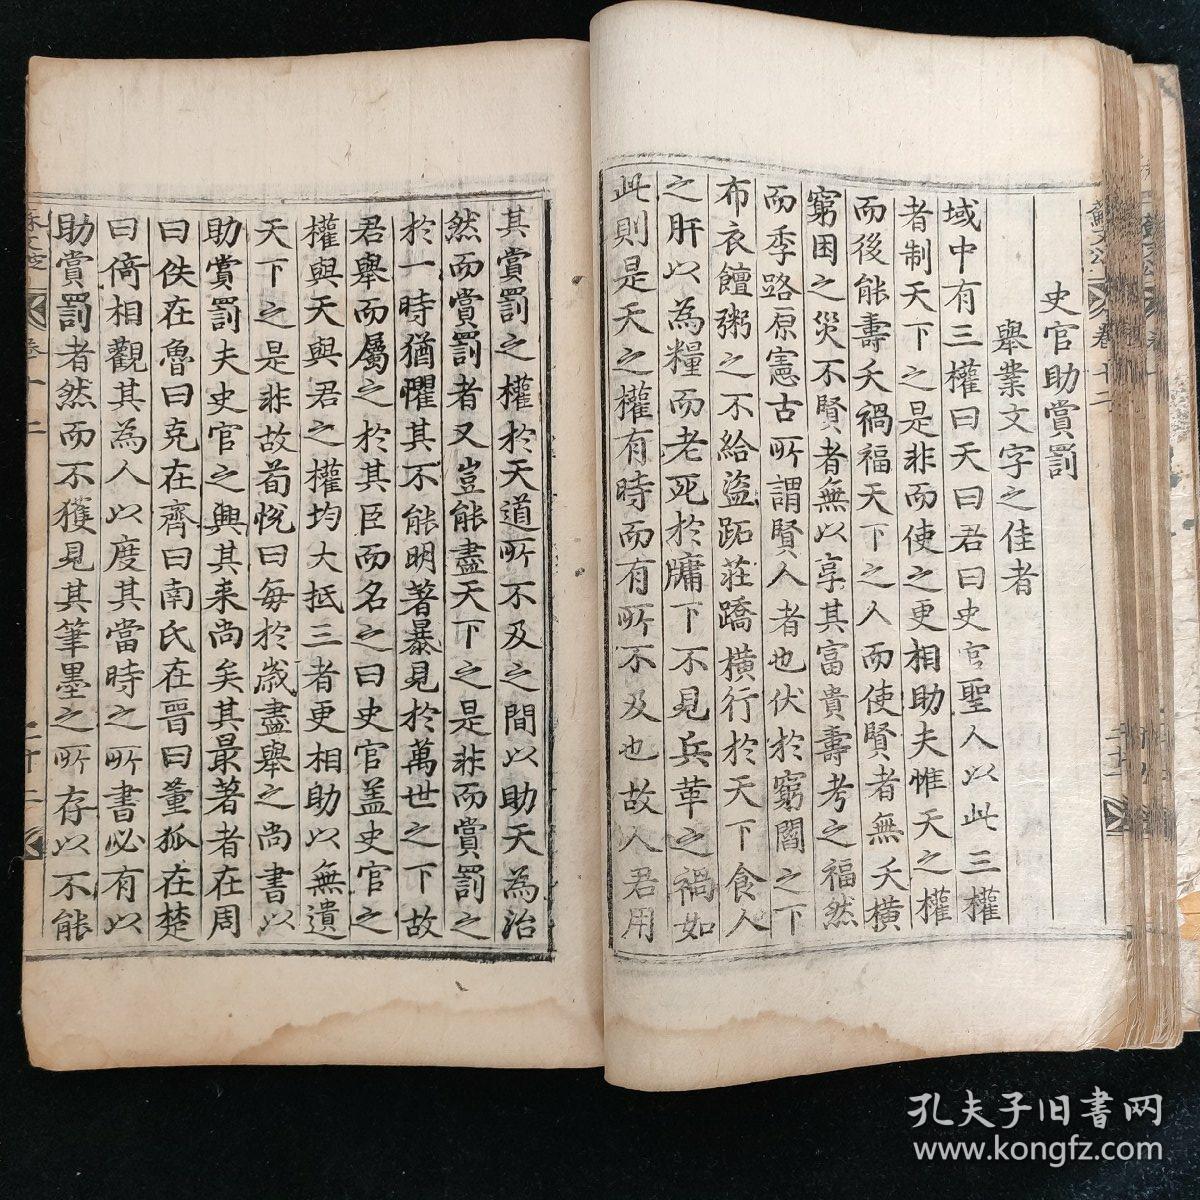 史官助賞罰
舉業文字之佳者
域中有三權曰天曰君曰史官聖人以此三權
者制天下之是非而使之更相助夫惟天之權
而後能壽夭禍福天下之人而使賢者無夭橫
窮困之災不賢者無以享其富貴壽考之福然
而季路原憲古所謂賢人者也伏於窮閻之下
布衣饘粥之不給盜跖莊蹻橫行於天下食人
之肝以為糧而老死於牖下不見兵革之禍如
此則是天之權有時而有所不及也故人君用
其賞罰之權於天道所不及之間以助天為治
然而賞罰者又豈能盡天下之是非而賞罰之
於一時猶懼其不能明著暴見於萬世之下故
君舉而屬之於其臣而名之曰史官盖史官之
權與天與君之權均大抵三者更相助以無遺
天下之是非故荀悅曰每於歲盡舉之尚書以
助賞罰夫史官之興其来尚矣其最著者在周
曰佚在魯曰克在齊曰南氏在晋曰董狐在楚
曰倚相觀其為人以度其當時之所書必有以
助賞罰者然而不獲見其筆墨之所存以不能
卷十二
二十二
蘇文公
卷十二
孔夫子旧書网
www.kongfz.com